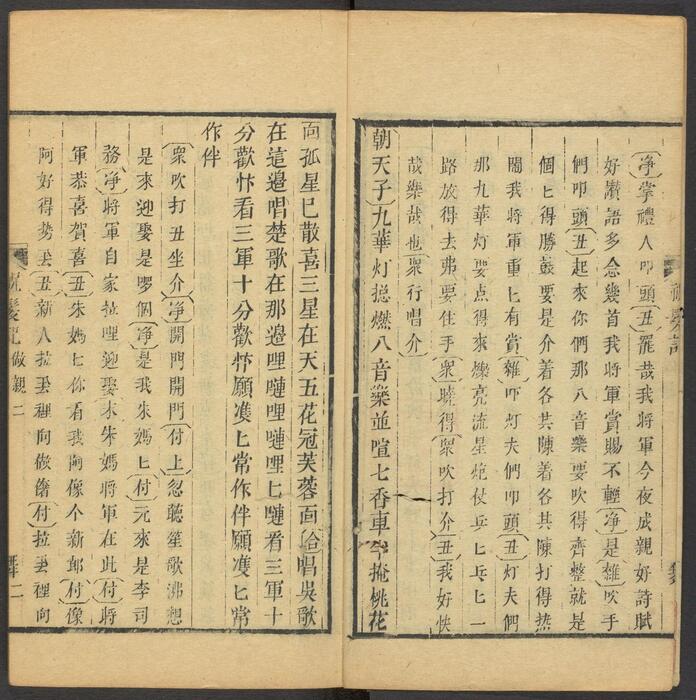 淨掌禮人叩頭丑罷哉我將軍今夜成親好詩賦
好讚語多念幾首我將軍賞賜不輕淨是雜吹手
們叩頭丑起來你們那八音樂要吹得齊整就是
個匕得勝鼓要是介着各其陳着各其陳打得热
鬧我將軍重匕有賞雜吓灯夫們叩頭丑灯夫們
那九華灯要点得來爍亮流星炮仗乒匕乓匕一
路放得去弗要住手衆曉得衆吹打介丑我好快
哉樂哉也衆行唱介
朝天子九華灯摠燃八音樂並喧七香車掩桃花
面孤星已散喜三星在天五花冠芙蓉面合唱吳歌
在這邉唱楚歌在那邉哩嗹哩嗹哩匕嗹看三軍十
分歡忭看三軍十分歡忭願凄匕常作伴願凄匕常
作伴
衆吹打丑坐介淨開門開門付上忽聽笙歌沸想
是來迎娶是啰個淨是我朱媽匕付元來是李司
務淨將軍自家拉哩迎娶朱媽將軍在此付將
軍恭喜賀喜丑朱媽匕你看我阿像个新郎付像
阿好得勢丟丑新人拉丟裡向做儕付拉丟裡向
祝髮記
祝髮記做親二
二